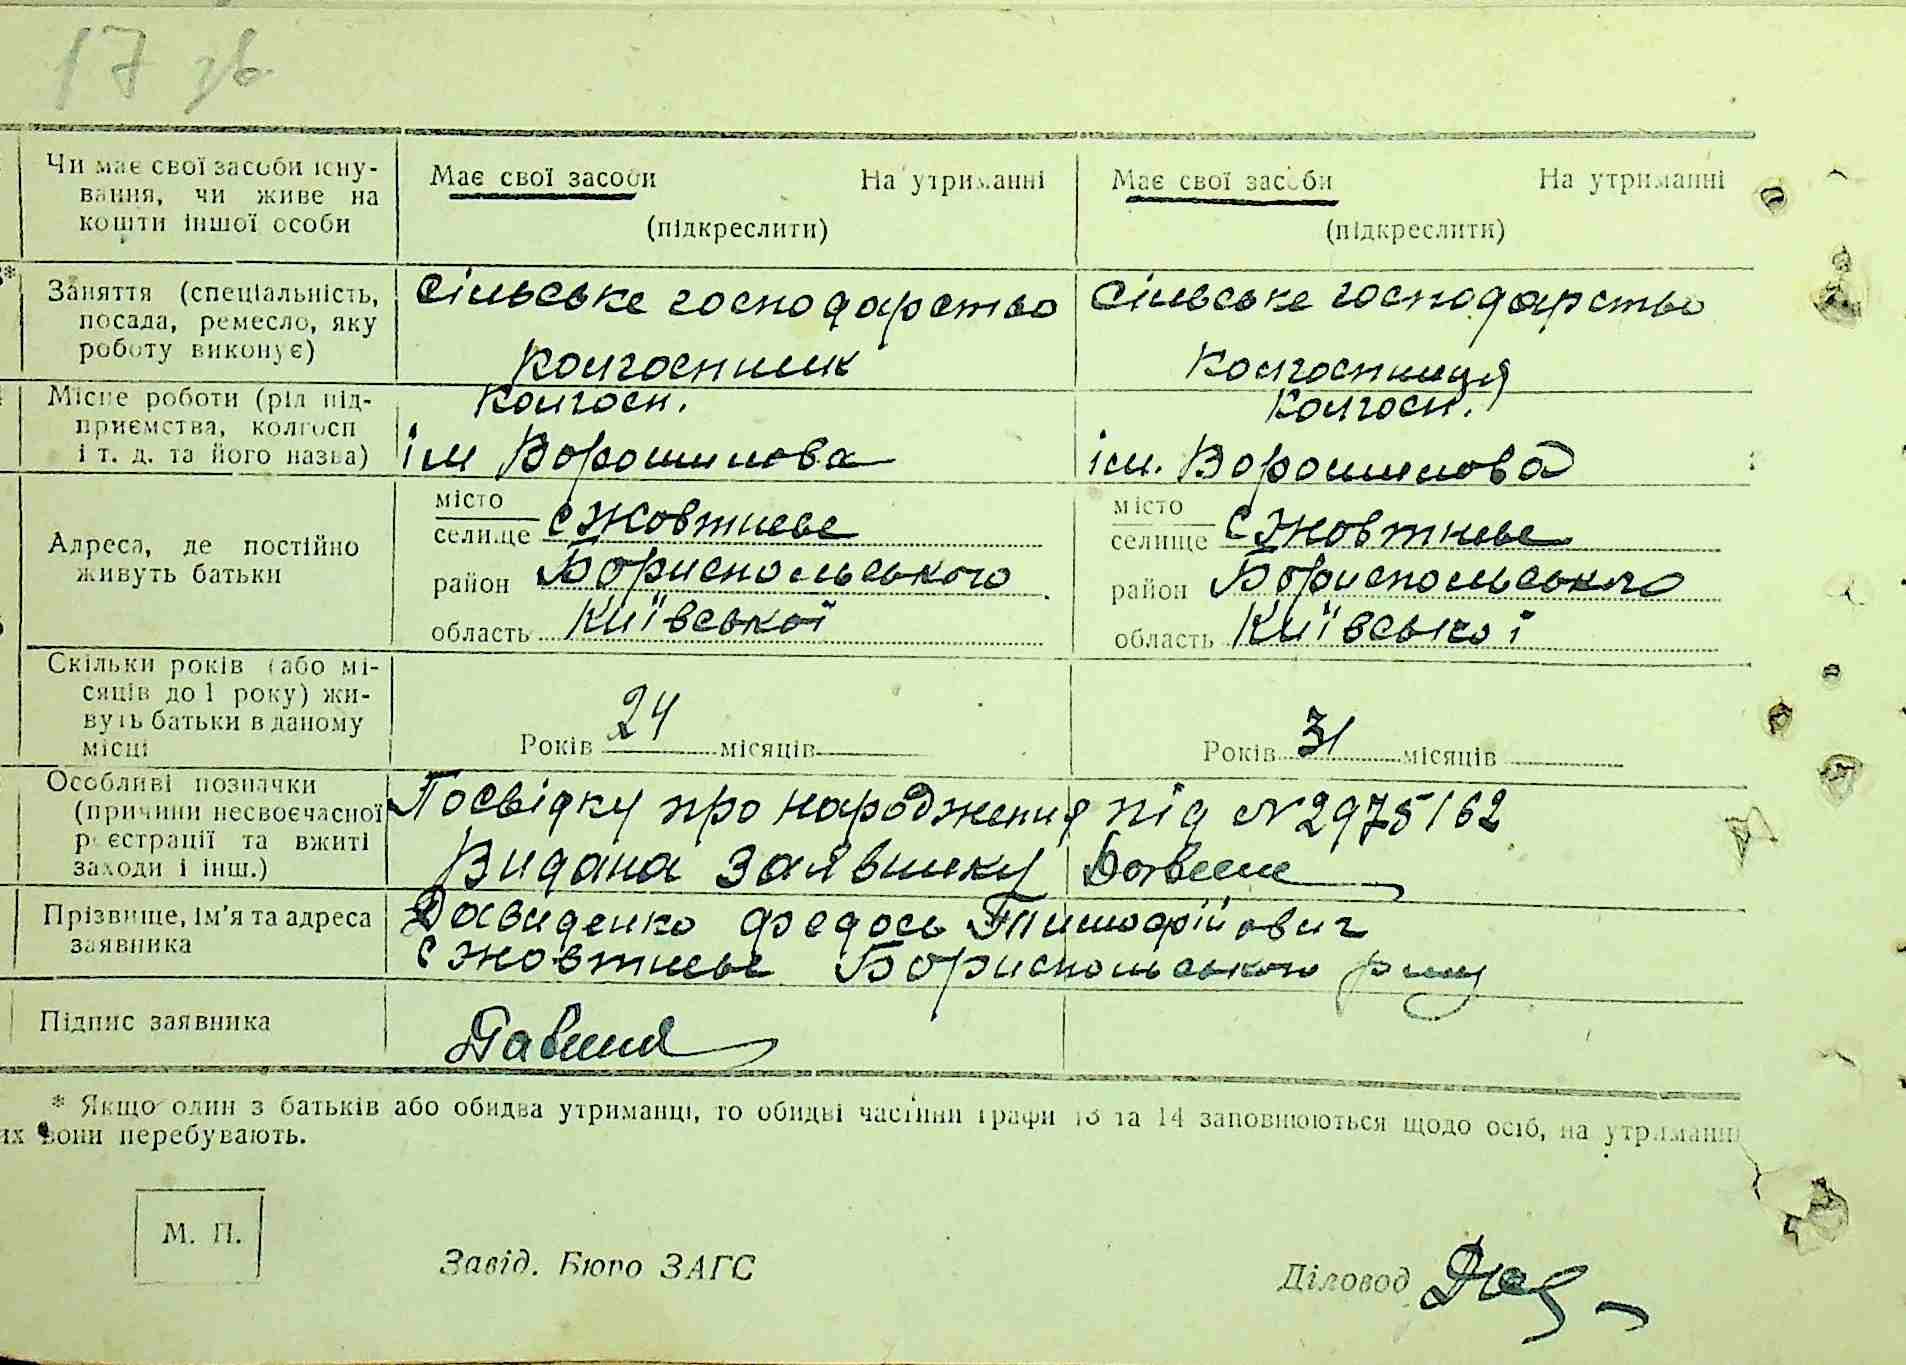 17 зв
Чи має свої засоби існу- Має свої засоби На утриманні Має свої засоби На утриманні
вання, чи живе на
кошти іншої особи (підкреслити) (підкреслити)
Заняття (спеціальність, Сільське господарство Сільське господарство
посада, ремесло, яку
роботу виконує) Колгоспник Колгоспниця
Місце роботи (рід під- Колгосп. Колгосп.
приємства, колгосп
і т. д. та його назва) ім Ворошилова ім. Ворошилова
місто місто
селище с Жовтневе селище с Жовтневе
Адреса, де постійно
живуть батьки район Бориспольського район Бориспольського
область Київської область Київської
Скільки років (або мі-
сяців до 1 року) жи-
вуть батьки в даному
місці Років 24 місяців Років 31 місяців
Особливі позначки
(причини несвоєчасної Посвідку про народження під N 2975162
реєстрації та вжиті
заходи і інш.) Видана заявнику
Прізвище, ім'я та адреса Давиденко Федось Тимофійович
заявника с Жовтневе Бориспольського р-ну
Підпис заявника
* Якщо один з батьків або обидва утриманці, то обидві частини графи 13 та 14 заповнюються щодо осіб, на утриманні
их вони перебувають.
М. П.
Завід. Бюро ЗАГС Діловод